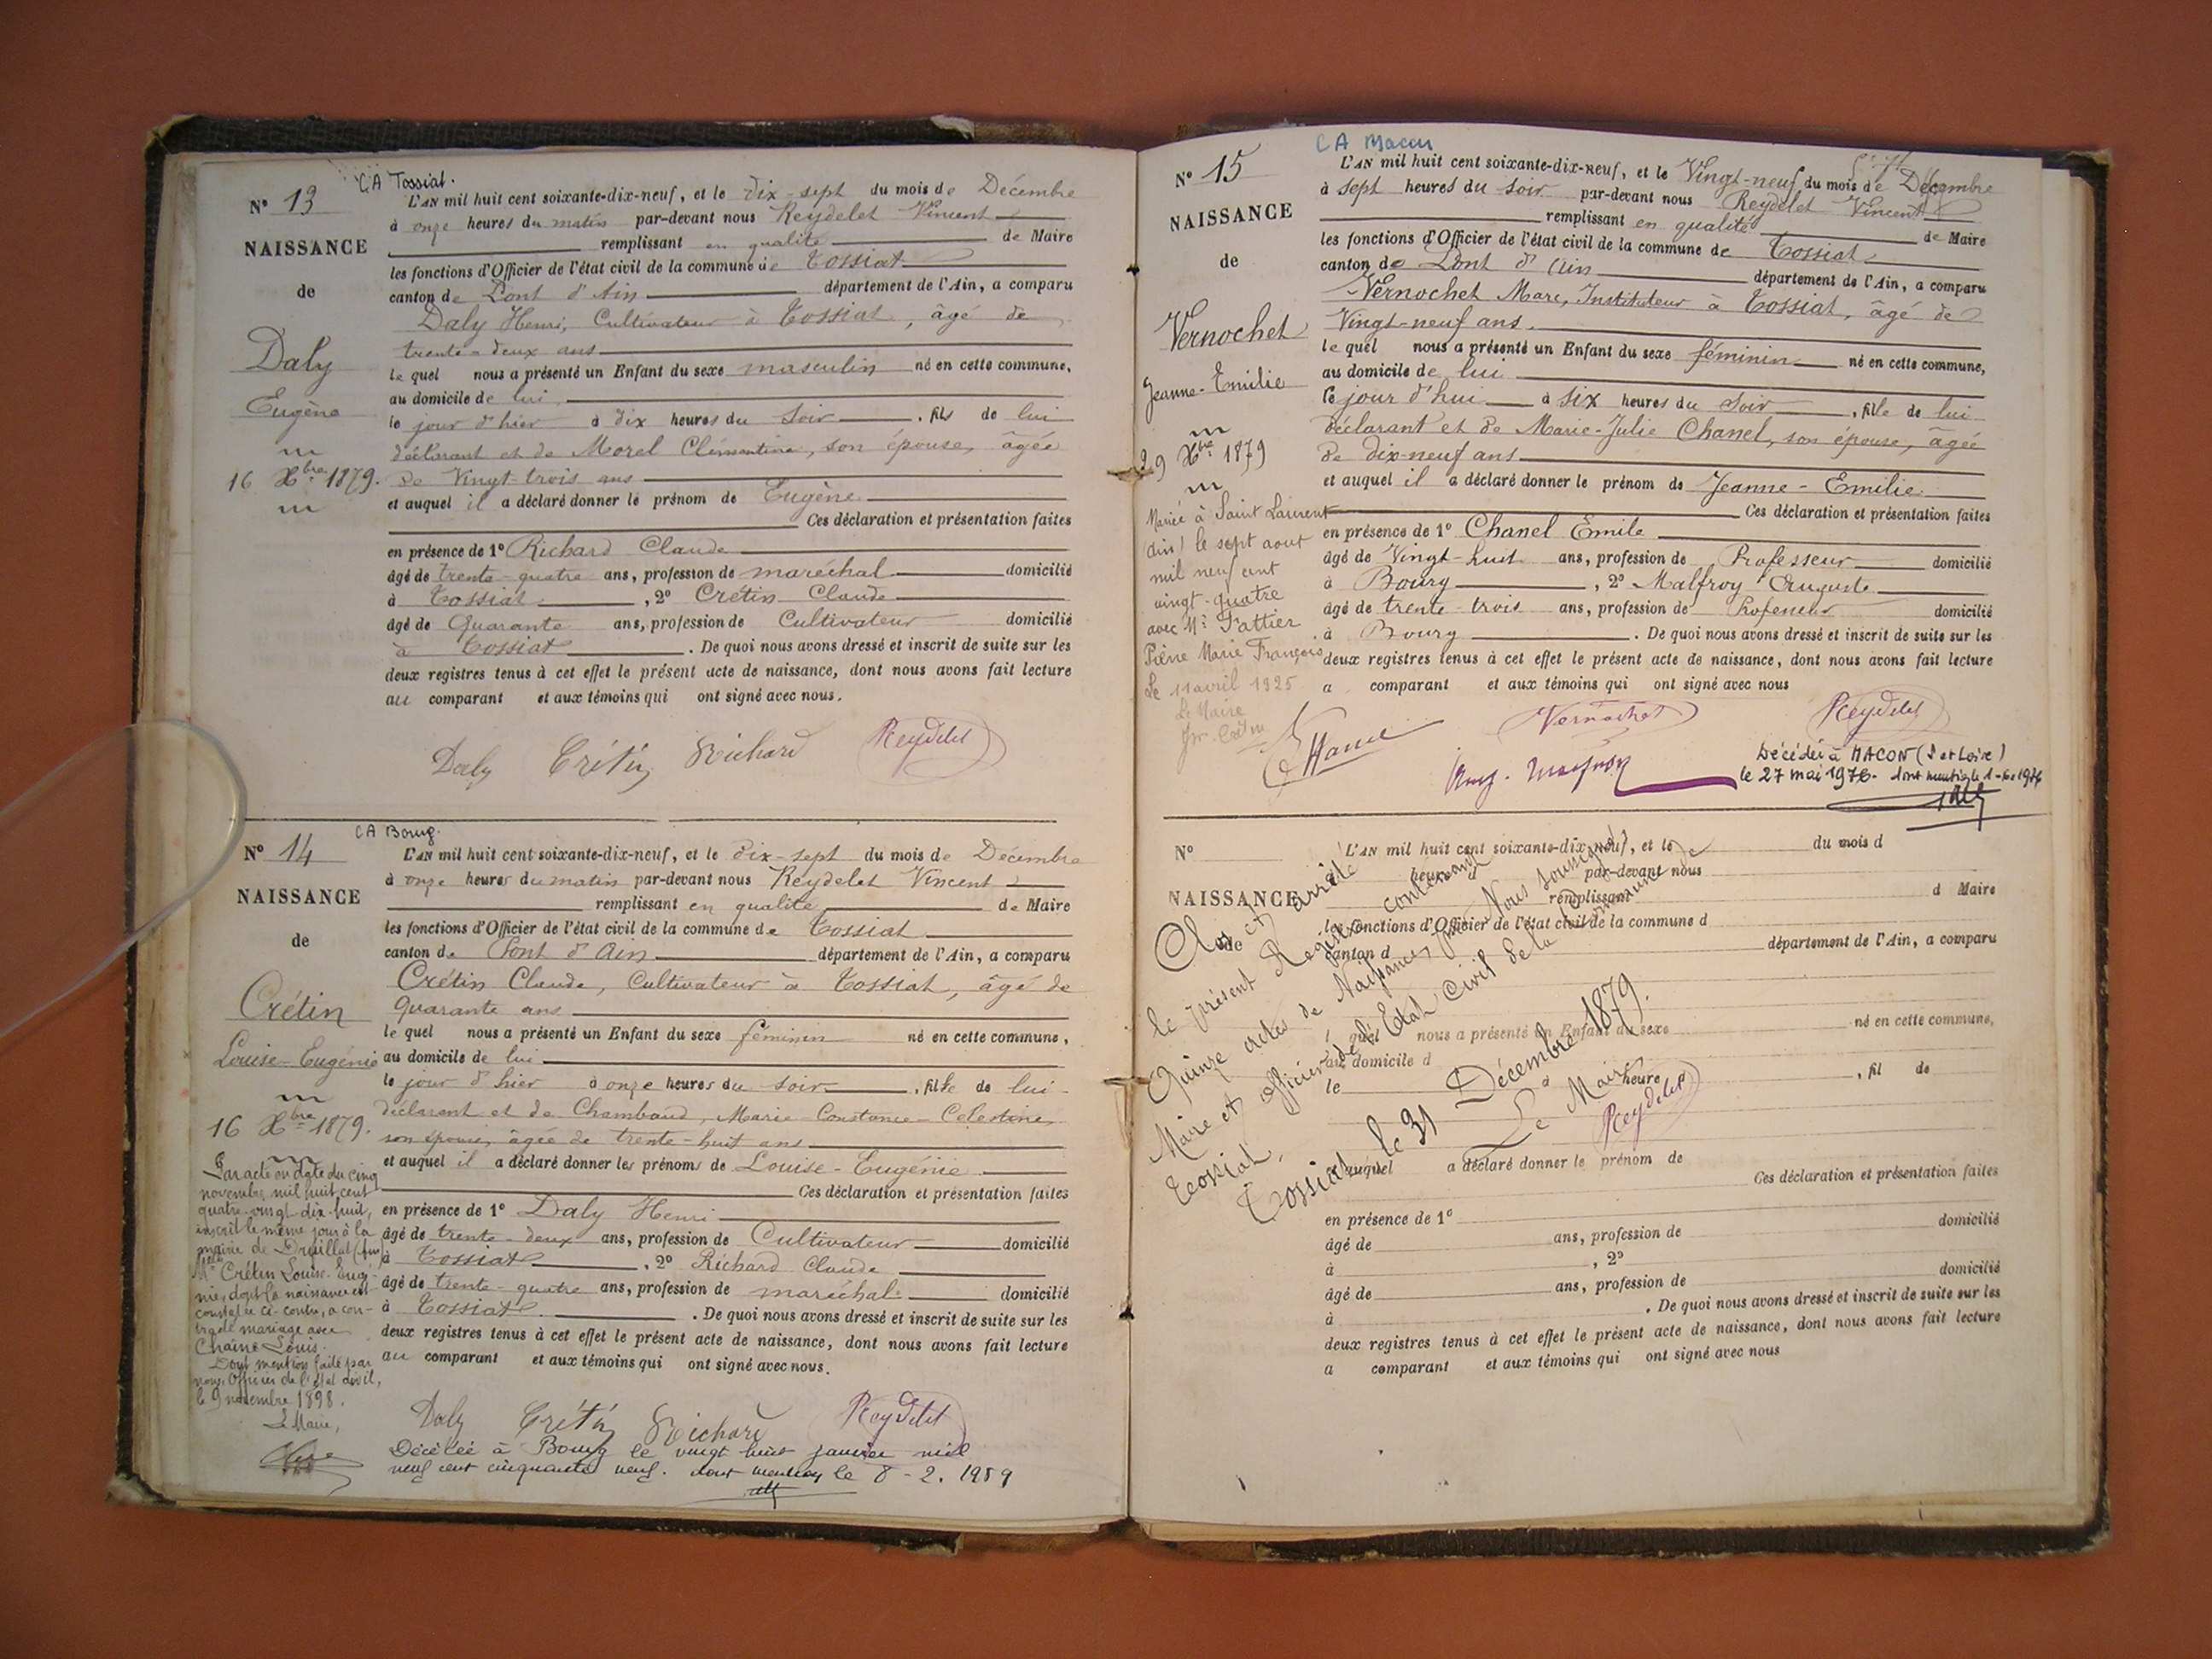 CA Tossiat.
N° 13
NAISSANCE
de
Daly
Eugène
16 Xbre 1879.
L'AN mil huit cent soixante-dix-neuf, et le dix-sept du mois de Décembre
à onze heures du matin par-devant nous Reydelet Vincent
remplissant en qualité de Maire
les fonctions d'Officier de l'état civil de la commune de Tossiat
canton de Pont d'Ain département de l'Ain, a comparu
Daly Henri, Cultivateur à Tossiat, âgé de
trente-deux ans
lequel nous a présenté un Enfant du sexe masculin né en cette commune,
au domicile de lui
le jour d'hier à dix heures du soir, fils de lui
déclarant et de Morel Clémentine, son épouse, âgée
de Vingt-trois ans
et auquel il a déclaré donner le prénom de Eugène
Ces déclaration et présentation faites
en présence de 1° Richard Claude
âgé de trente-quatre ans, profession de maréchal domicilié
à Tossiat, 2° Crétin Claude
âgé de Quarante ans, profession de Cultivateur domicilié
à Tossiat. De quoi nous avons dressé et inscrit de suite sur les
deux registres tenus à cet effet le présent acte de naissance, dont nous avons fait lecture
au comparant et aux témoins qui ont signé avec nous.
Daly Crétin Richard Reydelet
CA Bourg.
N° 14
NAISSANCE
de
Crétin
Louise-Eugénie
16 Xbre 1879.
Par acte en date du cinq
novembre mil huit cent
quatre-vingt dix-huit,
inscrit le même jour à la
mairie de Druillat (Ain)
Mlle Crétin Louise-Eugé-
nie, dont la naissance est
constatée ci-contre, a con-
tracté mariage avec
Chaîne Louis.
Dont mention faite par
nous Officier de l'état civil,
le 9 novembre 1898.
Le Maire,
L'AN mil huit cent soixante-dix-neuf, et le dix-sept du mois de Décembre
à onze heures du matin par-devant nous Reydelet Vincent
remplissant en qualité de Maire
les fonctions d'Officier de l'état civil de la commune de Tossiat
canton de Pont d'Ain département de l'Ain, a comparu
Crétin Claude, Cultivateur à Tossiat, âgé de
Quarante ans
lequel nous a présenté un Enfant du sexe féminin né en cette commune,
au domicile de lui
le jour d'hier à onze heures du soir, fille de lui
déclarant et de Chambaud, Marie-Constance-Celestine,
son épouse, âgée de trente-huit ans
et auquel il a déclaré donner les prénoms de Louise-Eugénie
Ces déclaration et présentation faites
en présence de 1° Daly Henri
âgé de trente-deux ans, profession de Cultivateur domicilié
à Tossiat, 2° Richard Claude
âgé de trente-quatre ans, profession de maréchal domicilié
à Tossiat. De quoi nous avons dressé et inscrit de suite sur les
deux registres tenus à cet effet le présent acte de naissance, dont nous avons fait lecture
au comparant et aux témoins qui ont signé avec nous.
Daly Crétin Richard Reydelet
Décédée à Bourg le vingt huit janvier mil
neuf cent cinquante neuf. dont mention le 8-2.1959
CA Macon
N° 15
NAISSANCE
de
Vernochet
Jeanne-Emilie
29 Xbre 1879
Mariée à Saint Laurent
(Ain) le sept aout
mil neuf cent
vingt-quatre
avec Mr Pattier
Pierre Marie François
Le 11 avril 1925
Le Maire
L'AN mil huit cent soixante-dix-neuf, et le Vingt-neuf du mois de Décembre
à sept heures du soir par-devant nous Reydelet Vincent
remplissant en qualité de Maire
les fonctions d'Officier de l'état civil de la commune de Tossiat
canton de Pont d'Ain département de l'Ain, a comparu
Vernochet Marc, Instituteur à Tossiat, âgé de
Vingt-neuf ans.
lequel nous a présenté un Enfant du sexe féminin né en cette commune,
au domicile de lui
le jour d'hui à six heures du soir, fille de lui
déclarant et de Marie-Julie Chanel, son épouse, âgée
de dix-neuf ans
et auquel il a déclaré donner le prénom de Jeanne-Emilie.
Ces déclaration et présentation faites
en présence de 1° Chanel Emile
âgé de Vingt-huit ans, profession de Professeur domicilié
à Bourg, 2° Malfroy Auguste
âgé de trente-trois ans, profession de Professeur domicilié
à Bourg. De quoi nous avons dressé et inscrit de suite sur les
deux registres tenus à cet effet le présent acte de naissance, dont nous avons fait lecture
a comparant et aux témoins qui ont signé avec nous
Vernochet Reydelet
E Chanel Aug. Malfroy
Décédée à MACON (S et Loire)
le 27 mai 1976. dont mention le
N°
NAISSANCE
de
L'AN mil huit cent soixante-dix-neuf, et le du mois d
heure d par-devant nous
remplissant d Maire
les fonctions d'Officier de l'état civil de la commune d
canton d département de l'Ain, a comparu
l quel nous a présenté un Enfant du sexe né en cette commune,
au domicile d
le à heure d, fil de
et auquel a déclaré donner le prénom de
Ces déclaration et présentation faites
en présence de 1° domicilié
âgé de ans, profession de
à , 2°
âgé de ans, profession de domicilié
à . De quoi nous avons dressé et inscrit de suite sur les
deux registres tenus à cet effet le présent acte de naissance, dont nous avons fait lecture
a comparant et aux témoins qui ont signé avec nous
Clos et arrêté
le présent Registre contenant
Quinze actes de Naissances par Nous soussigné
Maire et officier de l'Etat Civil de la commune de
Tossiat.
Tossiat le 31 Décembre 1879.
Le Maire
Reydelet